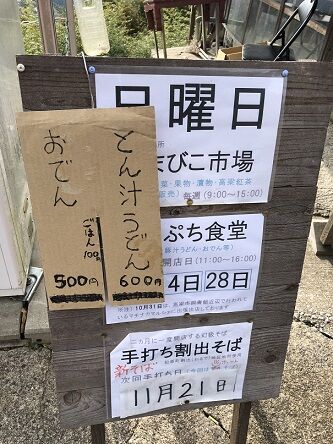 日曜日
所
まびこ市場
菜・果物・漬物・高梁紅茶
販売） 毎週（9:00～15:00）
とん汁うどん
600円
おでん
ごはん100円
500円
ぷち食堂
豚汁うどん・おでん等）
開店日（11:00～16:00）
4日 28日
二カ月に一度開店する打級そば
手打ち割出そば
新そば
次回手打ち日
11月21日